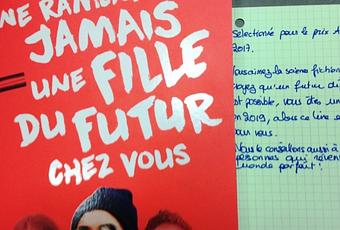 NE RAMENEZ
JAMAIS
UNE FILLE
DU FUTUR
CHEZ VOUS
Sélectionné pour le prix A
2017.
ous aimez la science fiction
oyez qu'un futur di
st possible, vous êtes un
en 2019, alors ce livre e
our vous.
Nous le conseillons aussi à
personnes qui rêvent
monde parfait!